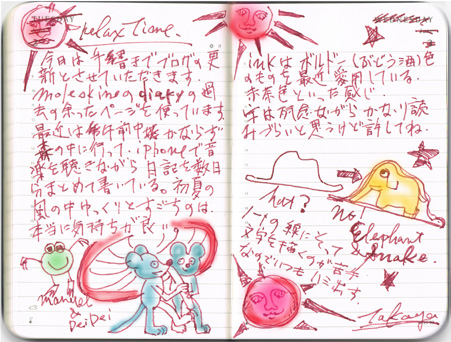 relax Time.
今日は手書きでブログの更
新とさせていただきます。
moleskineのdiaryの過
去の余ったページを使っています。
最近は毎日午前中必かならず
森の中に行って、iphoneで音
楽を聴きながら日記を数日
分まとめて書いている。初夏の
風の中ゆっくりとすごすのは、
本当に気持ちが良い
manuel
& DeiDei
inkはボルドー(ぶどう酒)色
のものを最近愛用している。
赤茶色といった感じ。
字は我ながらかなり読
みづらいと思うけど許してね。
hat?
No!
Elephant
& Snake.
ノートの線にそって
文字を書くのが苦手
なのでいつもハミ出す。
Takaya